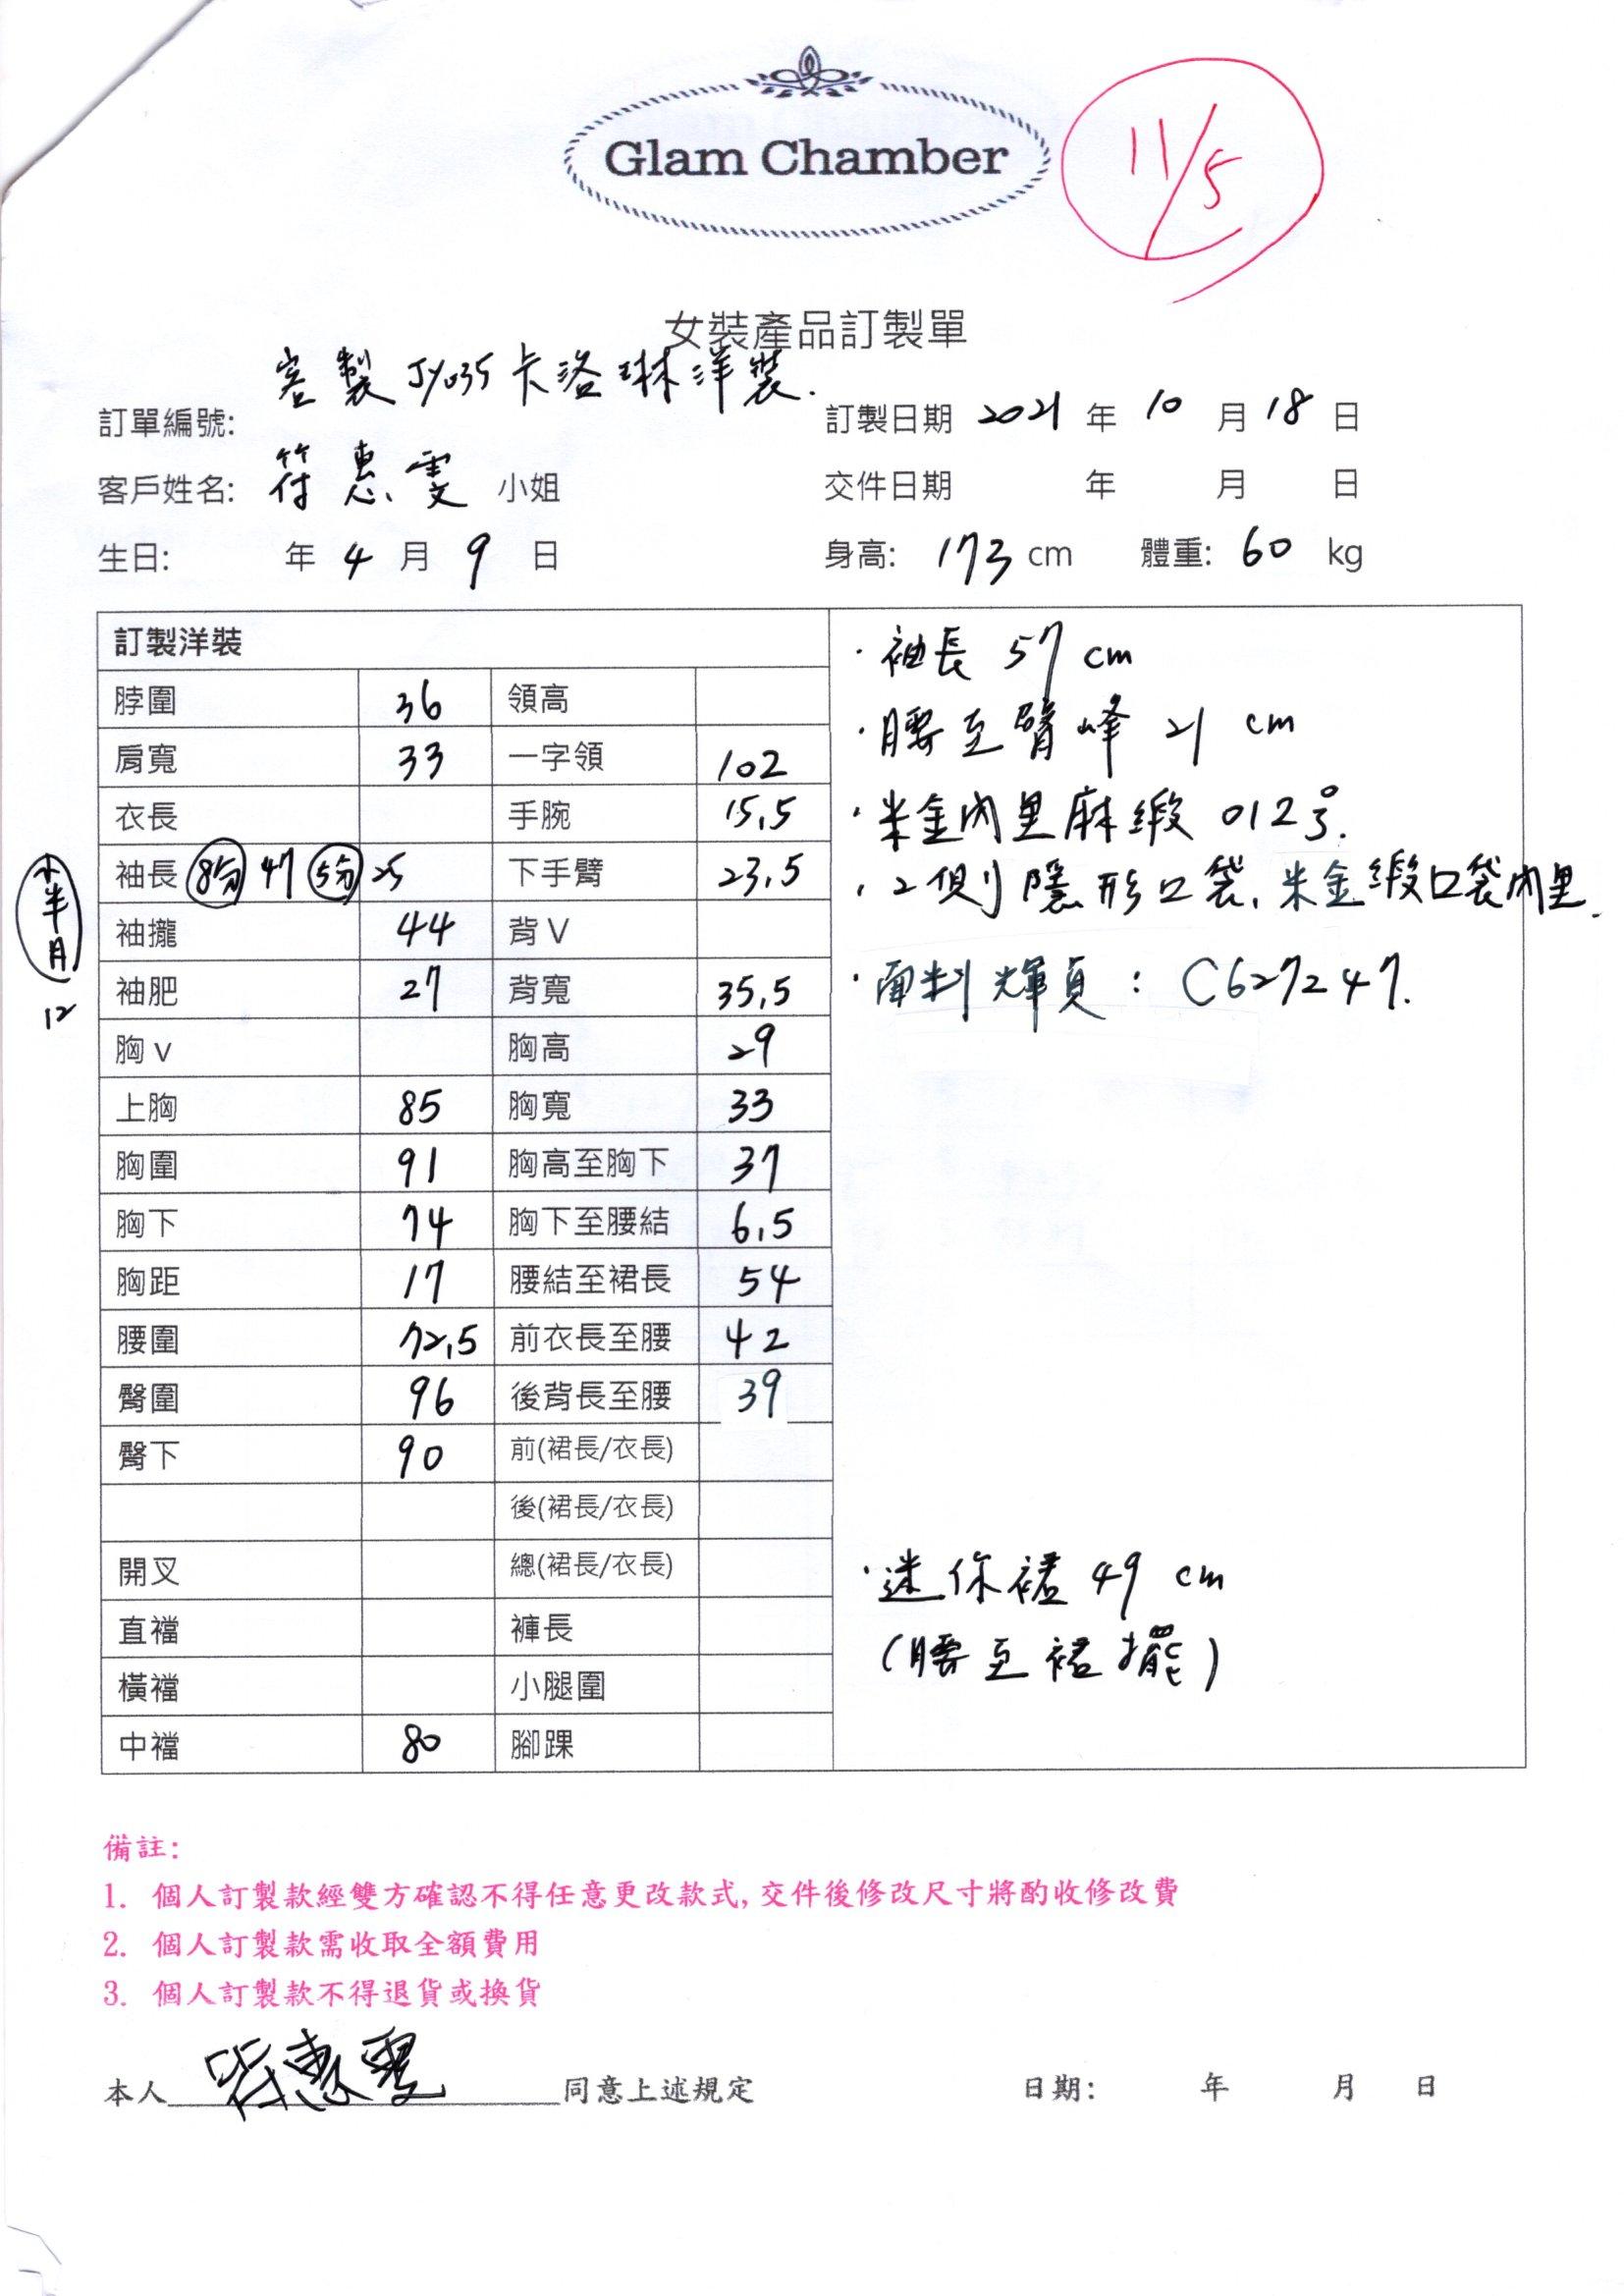 Glam Chamber
11/5
女裝產品訂製單
訂單編號: 客製 JY035 卡洛琳洋裝.
訂製日期 2021 年 10 月 18 日
客戶姓名: 符惠雯 小姐
交件日期 年 月 日
生日: 年 4 月 9 日
身高: 173 cm 體重: 60 kg
訂製洋裝
脖圍 36 領高
肩寬 33 一字領 102
衣長 手腕 15.5
袖長 8分 47 5分 25 下手臂 23.5
袖攏 44 背 V
袖肥 27 背寬 35.5
胸 v 胸高 29
上胸 85 胸寬 33
胸圍 91 胸高至胸下 37
胸下 74 胸下至腰結 6.5
胸距 17 腰結至裙長 54
腰圍 72.5 前衣長至腰 42
臀圍 96 後背長至腰 39
臀下 90 前(裙長/衣長)
後(裙長/衣長)
開叉 總(裙長/衣長)
直襠 褲長
橫襠 小腿圍
中襠 80 腳踝
半月
12
·袖長 57 cm
·腰至臀峰 21 cm
·米金內里麻緞 012號.
·2側隱形口袋、米金緞口袋內里.
·面料 輝貞: C627247.
·迷你裙 49 cm
(腰至裙擺)
備註:
1. 個人訂製款經雙方確認不得任意更改款式,交件後修改尺寸將酌收修改費
2. 個人訂製款需收取全額費用
3. 個人訂製款不得退貨或換貨
本人 符惠雯 同意上述規定 日期: 年 月 日